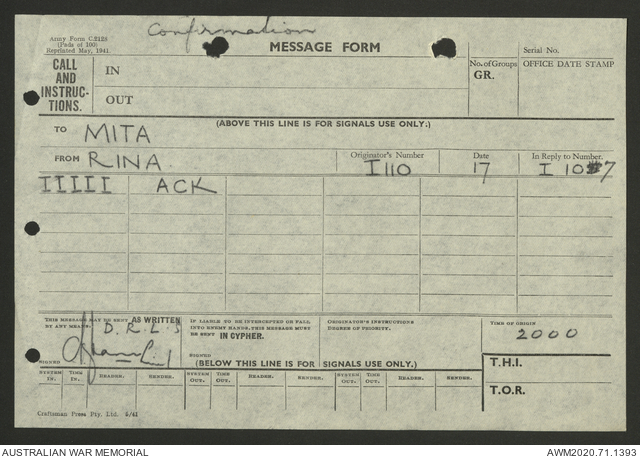 Confirmation
Army Form C.2128
(Pads of 100)
Reprinted May, 1941.
MESSAGE FORM
Serial No.
CALL
AND
INSTRUC-
TIONS.
IN
OUT
No. of Groups
GR.
OFFICE DATE STAMP
(ABOVE THIS LINE IS FOR SIGNALS USE ONLY.)
TO MITA
FROM RINA.
Originator's Number
I 110
Date
17
In Reply to Number
I 107
IIIII ACK
THIS MESSAGE MAY BE SENT AS WRITTEN
BY ANY MEANS.
D.R.L.S
SIGNED
IF LIABLE TO BE INTERCEPTED OR FALL
INTO ENEMY HANDS, THIS MESSAGE MUST
BE SENT IN CYPHER.
SIGNED
ORIGINATOR'S INSTRUCTIONS
DEGREE OF PRIORITY.
TIME OF ORIGIN
2000
(BELOW THIS LINE IS FOR SIGNALS USE ONLY.)
T.H.I.
T.O.R.
SYSTEM IN. TIME IN. READER. SENDER. SYSTEM OUT. TIME OUT. READER. SENDER. SYSTEM OUT. TIME OUT. READER. SENDER.
Craftsman Press Pty. Ltd. 5/41
AUSTRALIAN WAR MEMORIAL
AWM2020.71.1393